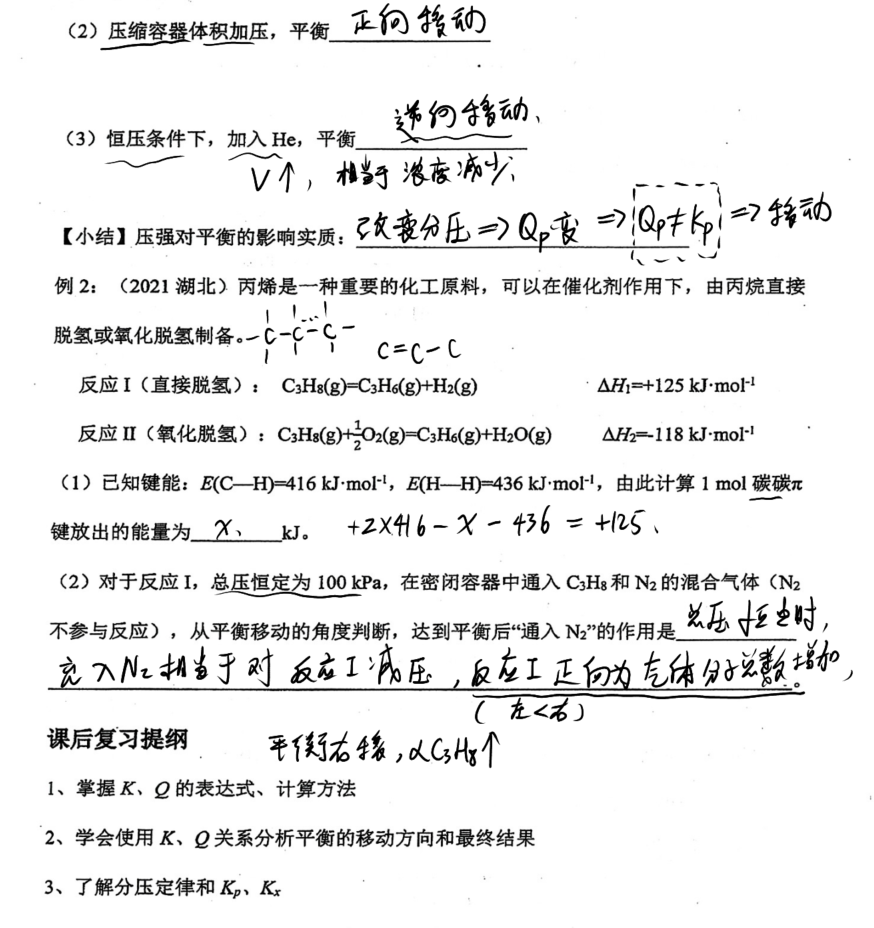 （2）压缩容器体积加压，平衡 正向移动
（3）恒压条件下，加入 He，平衡 逆向移动、
V↑，相当于浓度减少、
【小结】压强对平衡的影响实质：改变分压 => Qp变 => Qp≠Kp => 移动
例 2：（2021 湖北）丙烯是一种重要的化工原料，可以在催化剂作用下，由丙烷直接
脱氢或氧化脱氢制备。-C-C-C- C=C-C
反应 I（直接脱氢）： C₃H₈(g)=C₃H₆(g)+H₂(g) ΔH₁=+125 kJ·mol⁻¹
反应 II（氧化脱氢）：C₃H₈(g)+1/2O₂(g)=C₃H₆(g)+H₂O(g) ΔH₂=-118 kJ·mol⁻¹
（1）已知键能：E(C—H)=416 kJ·mol⁻¹，E(H—H)=436 kJ·mol⁻¹，由此计算 1 mol 碳碳π
键放出的能量为 X、 kJ。 +2×416-X-436=+125、
（2）对于反应 I，总压恒定为 100 kPa，在密闭容器中通入 C₃H₈ 和 N₂ 的混合气体（N₂
不参与反应），从平衡移动的角度判断，达到平衡后“通入 N₂”的作用是 总压恒定时，
充入N₂相当于对反应I减压，反应I正向为气体分子总数增加，。
（左<右）
平衡右移，αC₃H₈↑
课后复习提纲
1、掌握 K、Q 的表达式、计算方法
2、学会使用 K、Q 关系分析平衡的移动方向和最终结果
3、了解分压定律和 Kp、Kx